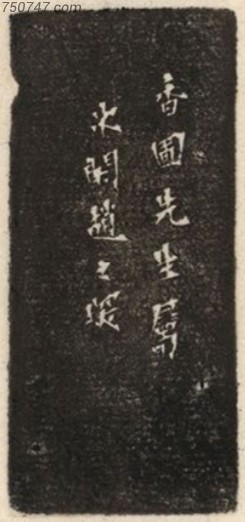 750747.com
香圃先生屬
次閑趙之琛